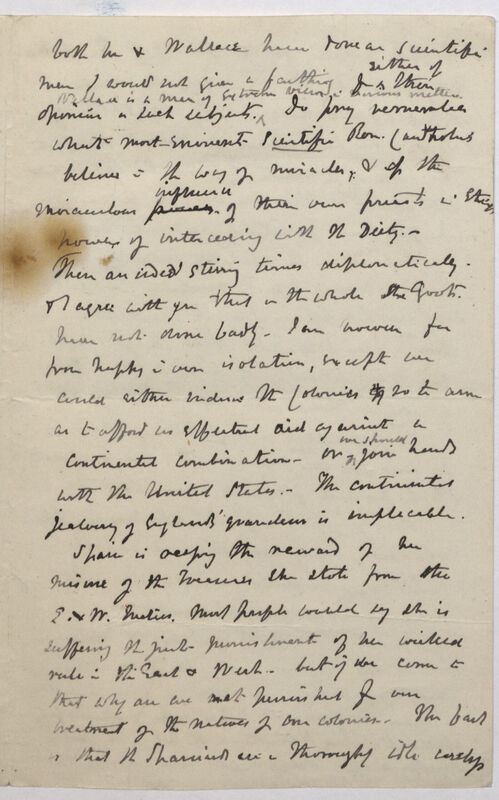 both he & Wallace have done as scientific
men I would not give a farthing for either of their
Wallace is a man of extreme views in various matters.
opinions on such subjects. Do pray remember
what most eminent Scientific Rom. Catholics
believe in the way of miracles, & of the
miraculous influence of their own priests in their
power of interceding with the Deity.—
These are indeed stirring times diplomatically.
& I agree with you that on the whole the Govt.
have not done badly. I am however far
from happy in our isolation, except we
could either induce the Colonies so to arm
as to afford us effectual aid against a
continental combination — or we should join hands
with the United States. — The continent's
jealousy of England's grandeur is implacable.
Spain is reaping the reward of her
misuse of the treasures she stole from the
E. & W. Indies. Most people would say she is
suffering the just punishment of her wicked
rule in the East & West — but if we come to
that why are we not punished for our
treatment of the natives of our colonies. The fact
is that the Spaniards are a thoroughly idle